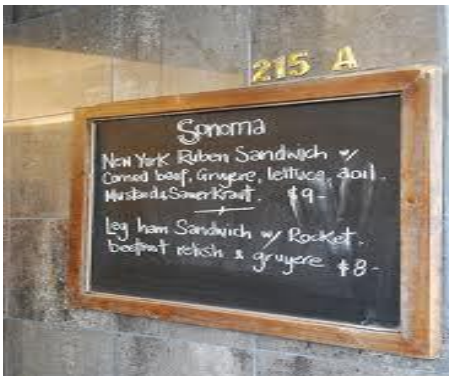 215 A
Sonoma
New York Ruben Sandwich w/
Corned beef, Gruyere, lettuce, aoil.
Mustard & SauerKraut. $9-
Leg ham Sandwich w/ Rocket.
beetroot relish & gruyere $8-